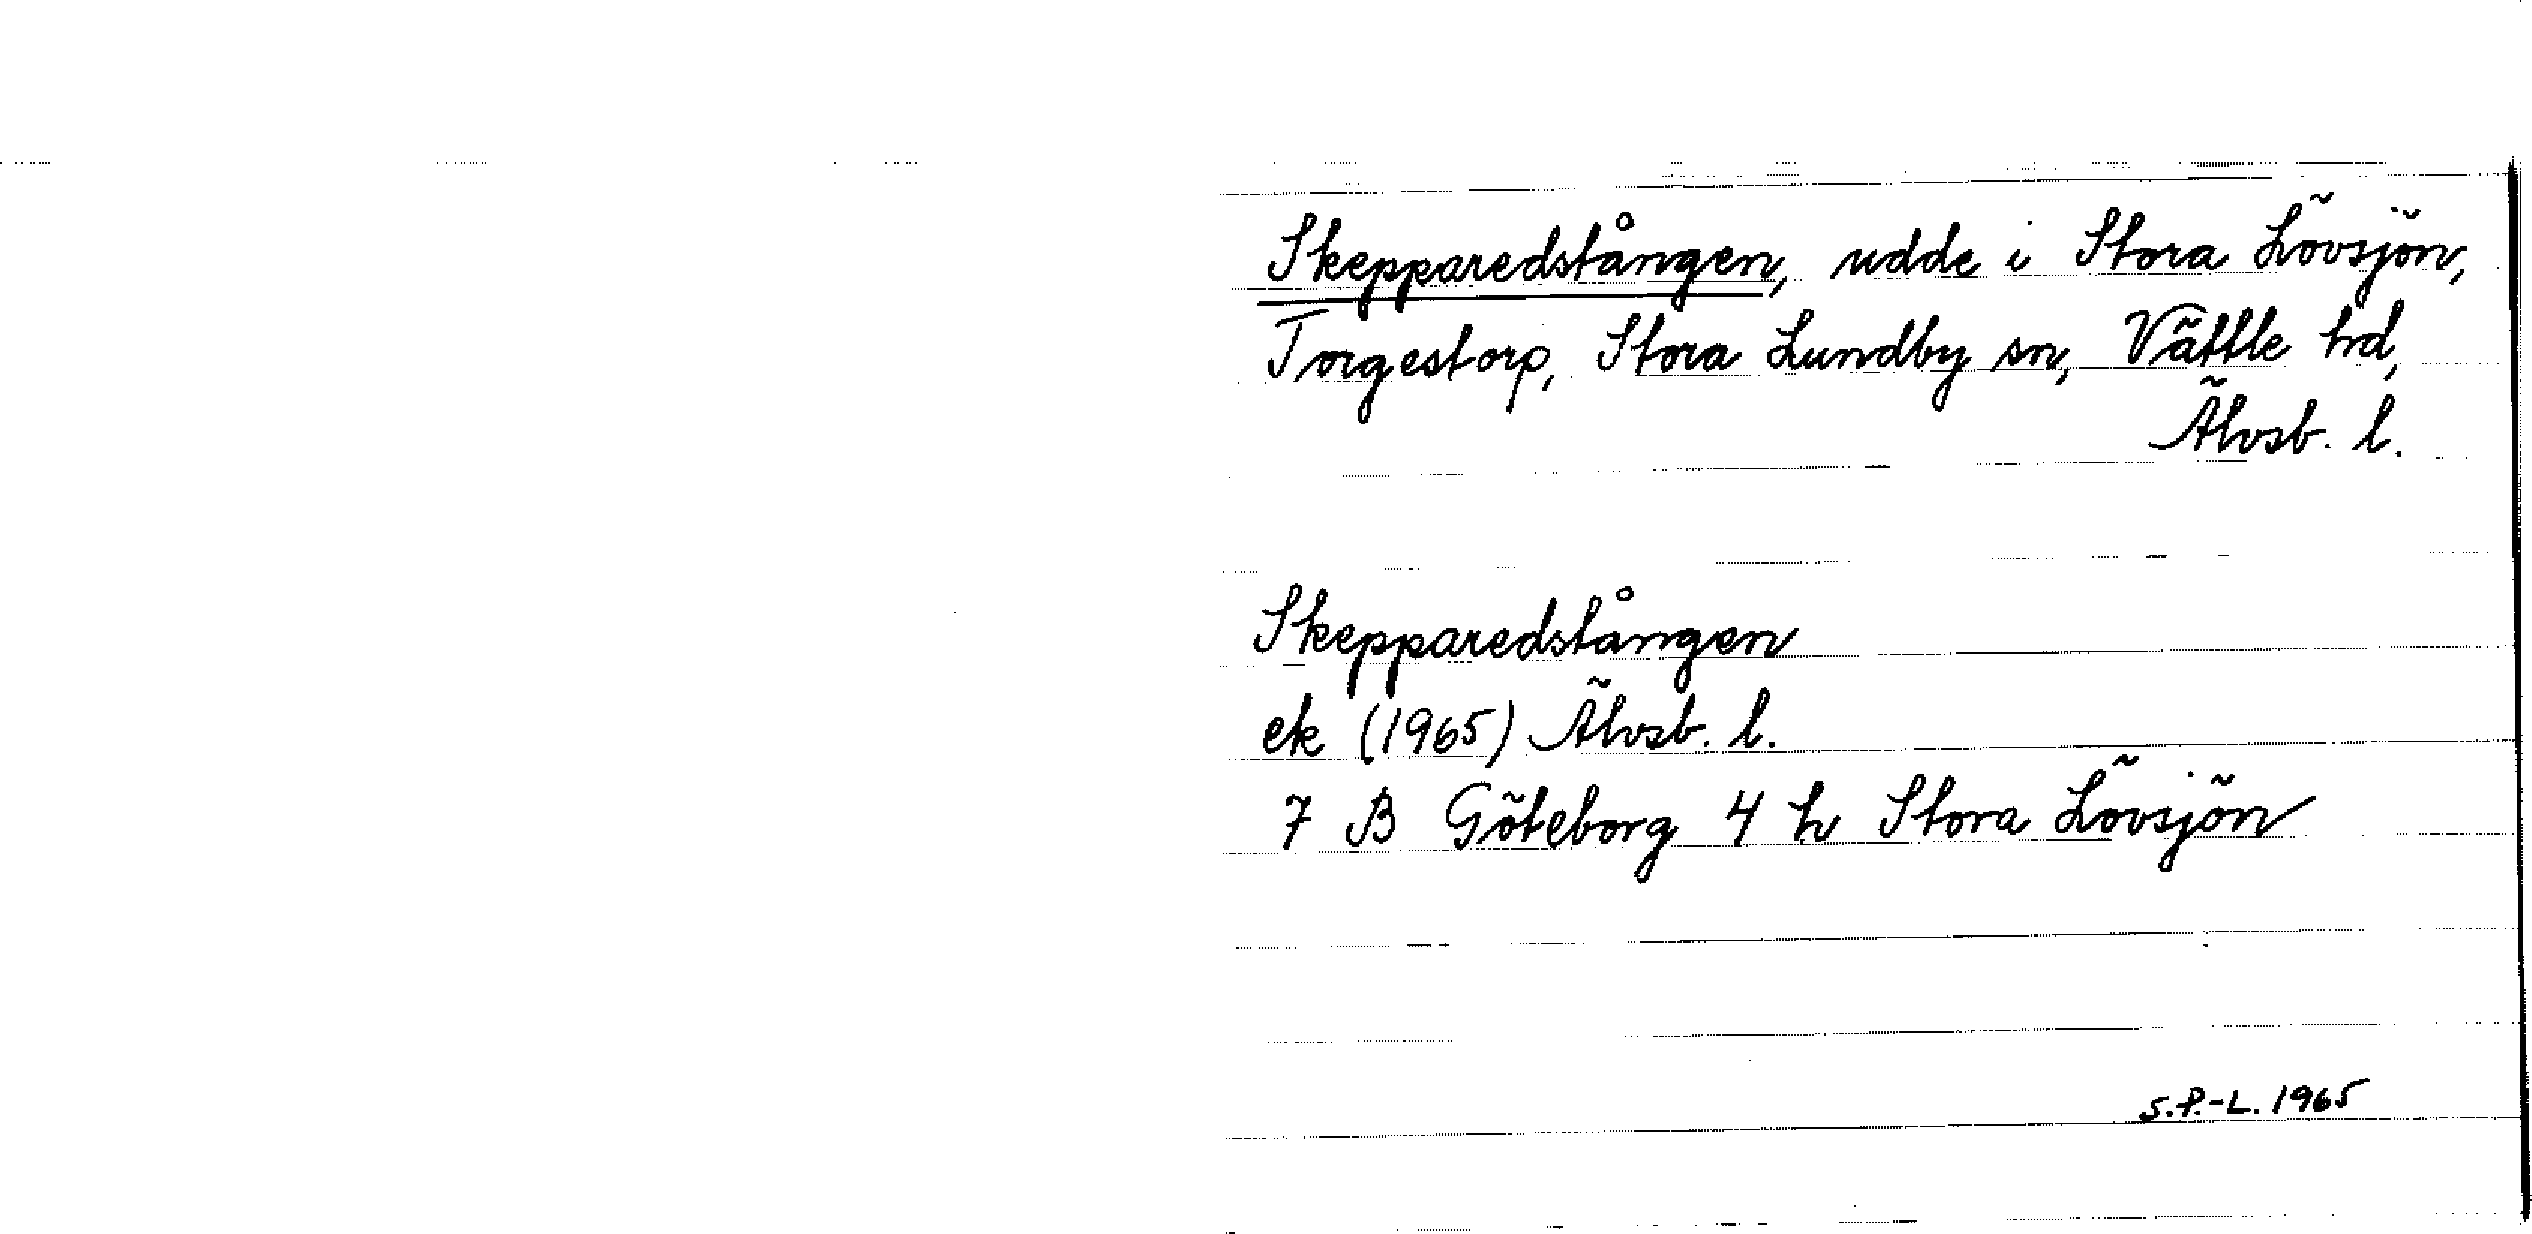 Skepparedstången, udde i Stora Lövsjön,
Torgestorp, Stora Lundby sn, Vättle hd,
Älvsb. l.
Skepparedstången
ek (1965) Älvsb. l.
7 B Göteborg 4 h Stora Lövsjön
S.P.-L. 1965